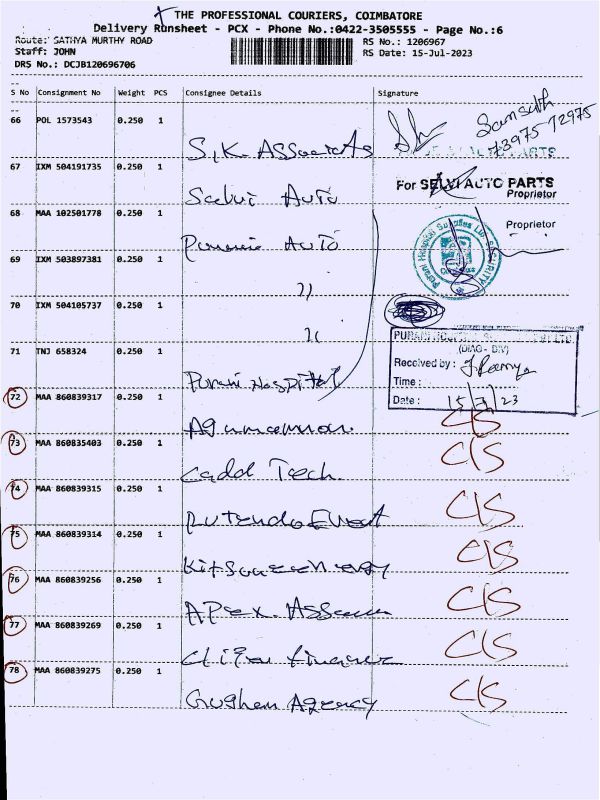 THE PROFESSIONAL COURIERS, COIMBATORE
Delivery Runsheet - PCX - Phone No.:0422-3505555 - Page No.:6
Route: SATHYA MURTHY ROAD RS No.: 1206967
Staff: JOHN RS Date: 15-Jul-2023
DRS No.: DCJB120696706
S No Consignment No Weight PCS Consignee Details Signature
66 POL 1573543 0.250 1
S.K. Associates
73975 72975
67 IXM 504191735 0.250 1
Selvi Auto
For SELVI AUTO PARTS
Proprietor
68 MAA 102501778 0.250 1
Auto
Proprietor
69 IXM 503897381 0.250 1
"
70 IXM 504105737 0.250 1
"
71 TNJ 658324 0.250 1
Purani Hospital
(DIAG - DIV)
Received by :
Time :
Date : 15/7/23
72 MAA 860839317 0.250 1
C/S
73 MAA 860835403 0.250 1
Cadd Tech.
C/S
74 MAA 860839315 0.250 1
C/S
75 MAA 860839314 0.250 1
C/S
76 MAA 860839256 0.250 1
Apex
C/S
77 MAA 860839269 0.250 1
C/S
78 MAA 860839275 0.250 1
Agency
C/S